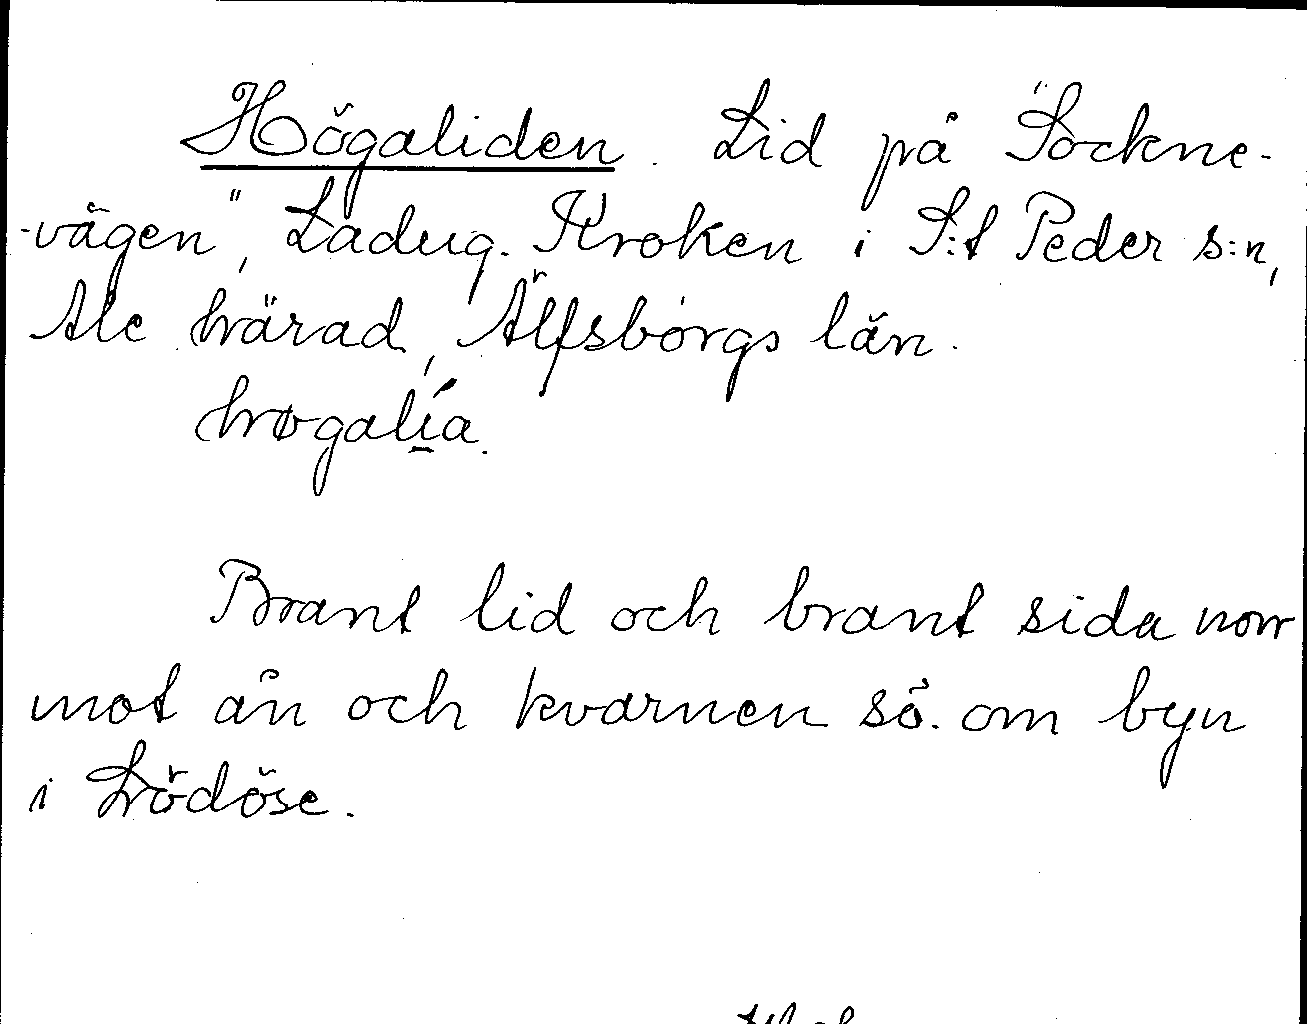 Högaliden. Lid på "Sockne-
-vägen", Ladug. Kroken i S:t Peder s:n,
Ale härad, Älfsborgs län.
høgalía.
Brant lid och brant sida norr
mot ån och kvarnen sö. om byn
i Lödöse.